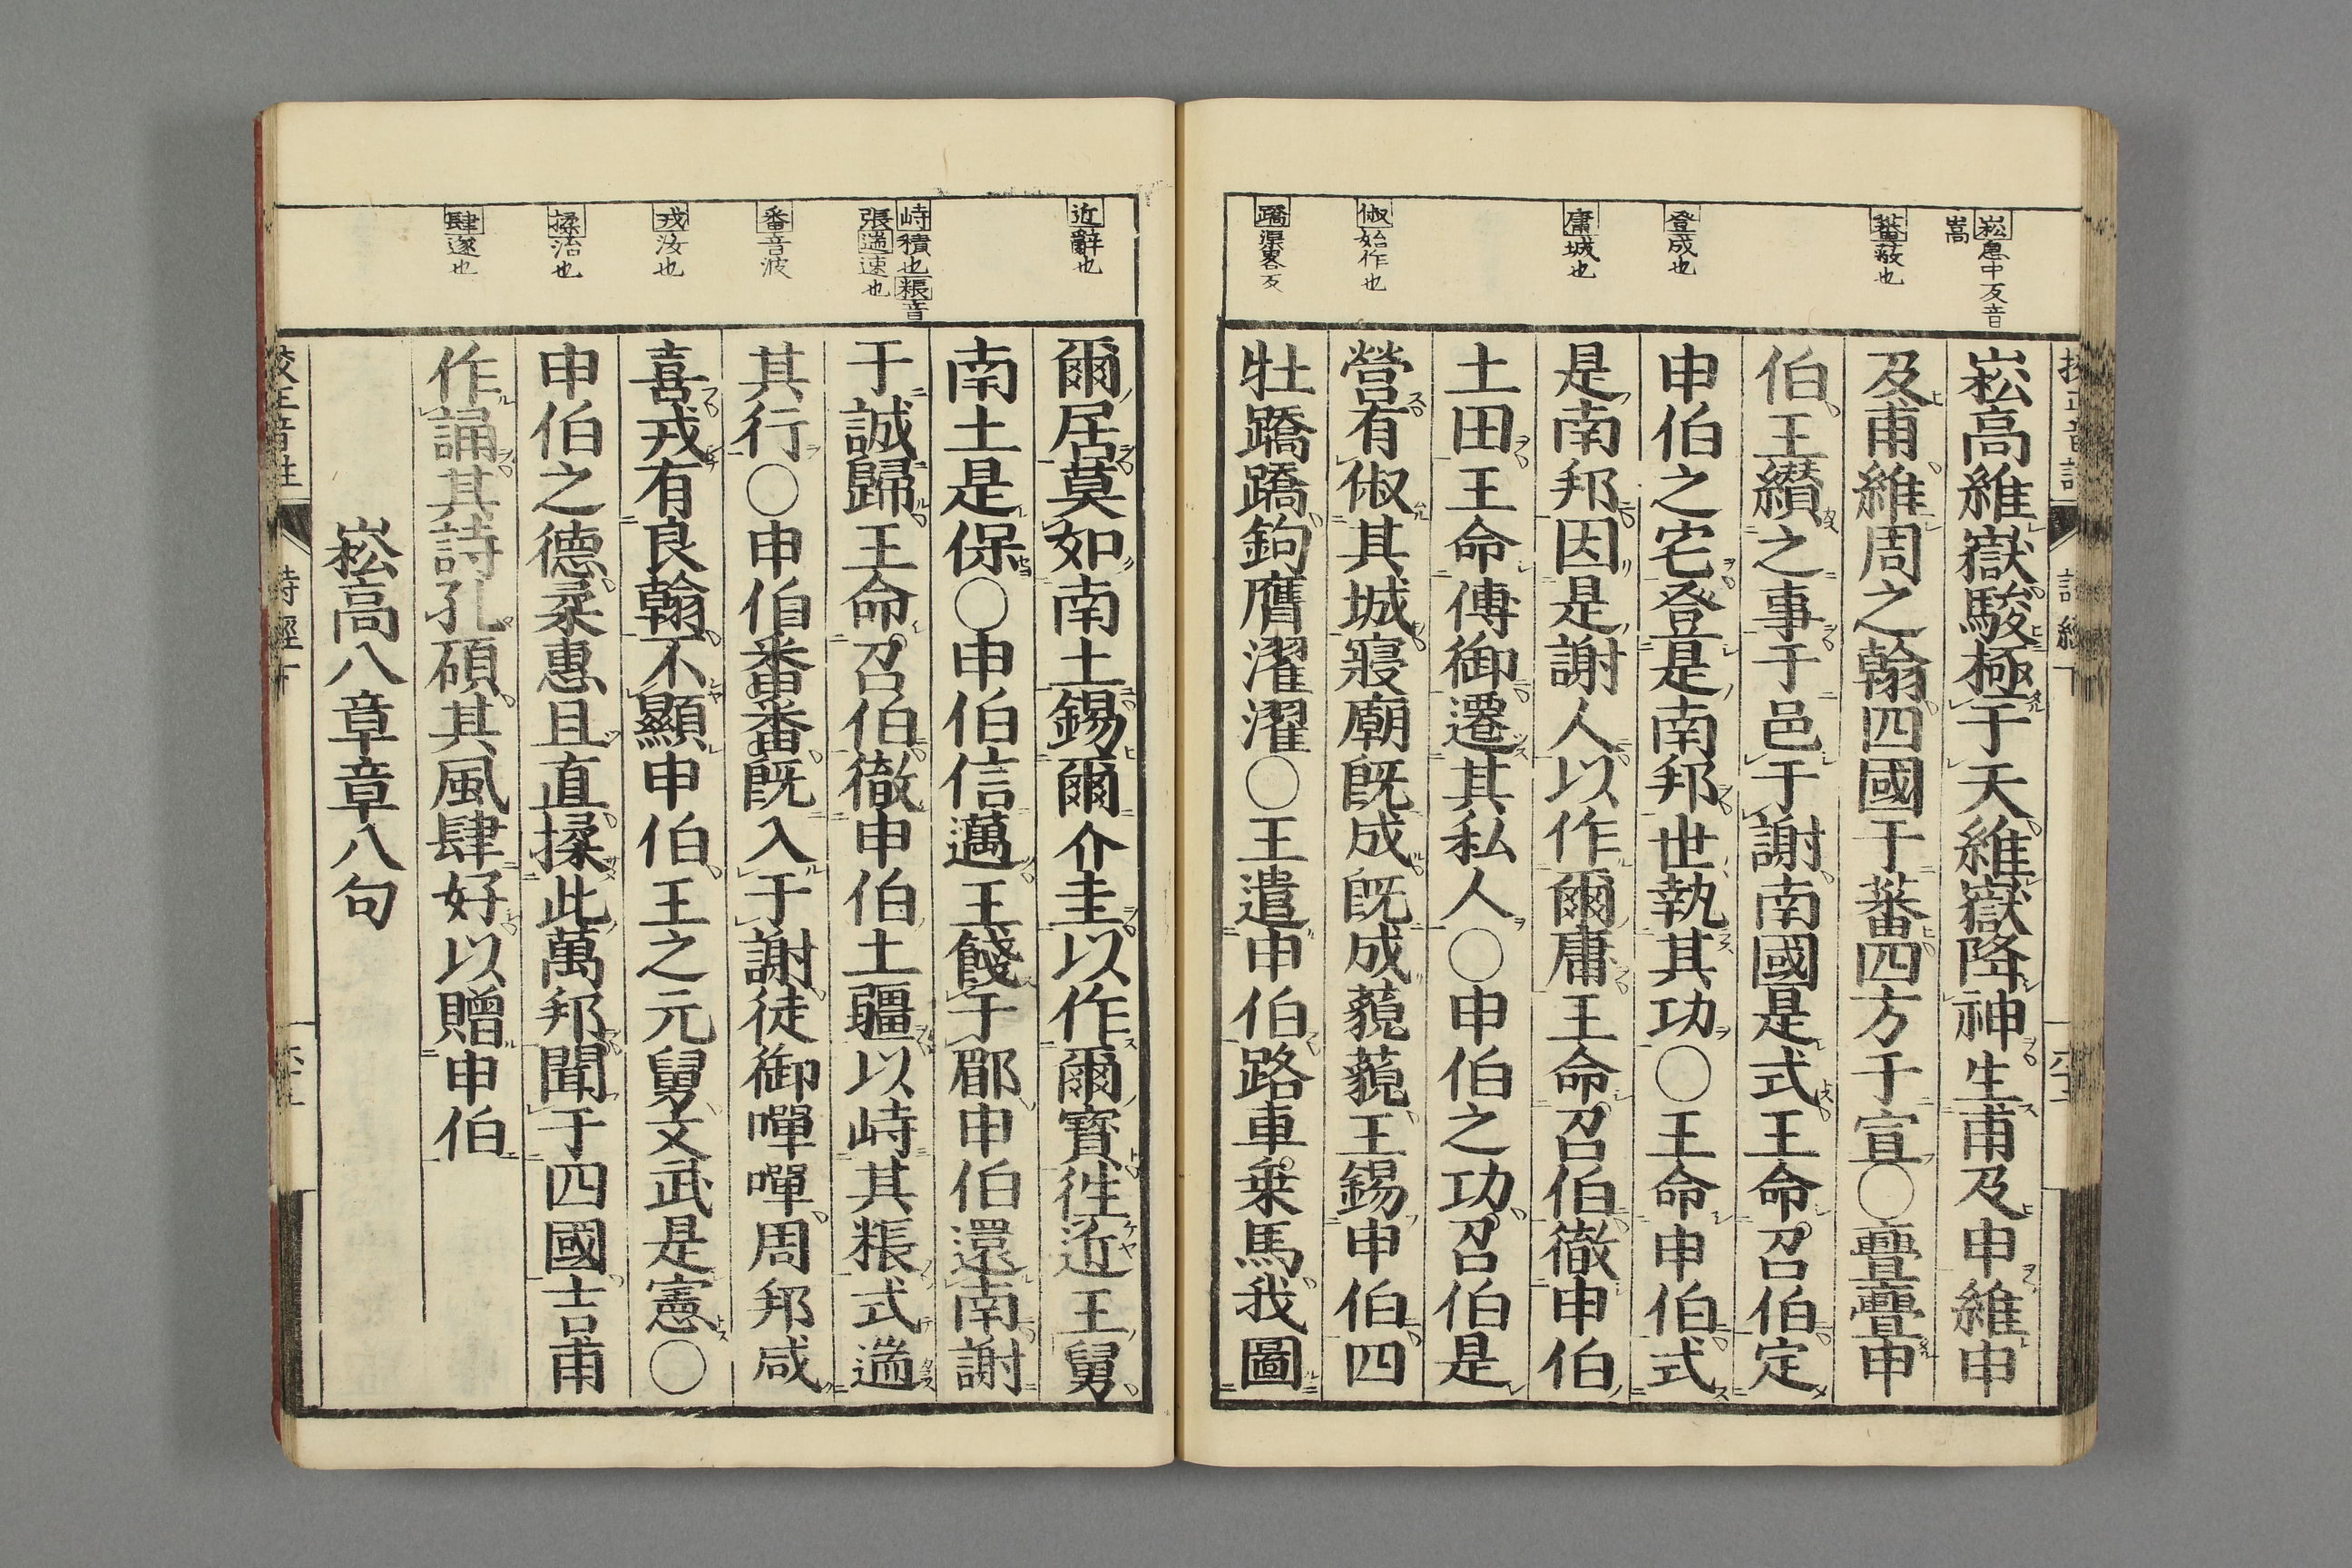 崧息中反音
嵩
蕃蔽也
登成也
庸城也
俶始作也
蹻渠畧反
崧高維嶽駿極于天維嶽降神生甫及申維申
及甫維周之翰四國于蕃四方于宣○亹亹申
伯王纘之事于邑于謝南國是式王命召伯定
申伯之宅登是南邦世執其功○王命申伯式
是南邦因是謝人以作爾庸王命召伯徹申伯
土田王命傅御遷其私人○申伯之功召伯是
營有俶其城寢廟旣成旣成藐藐王錫申伯四
牡蹻蹻鉤膺濯濯○王遣申伯路車乗馬我圖
近辭也
峙積也粻音
張遄速也
番音波
戎汝也
揉治也
肆遂也
爾居莫如南土錫爾介圭以作爾寳徃近王舅
南土是保○申伯信邁王餞于郿申伯還南謝
于誠歸王命召伯徹申伯土疆以峙其粻式遄
其行○申伯番番旣入于謝徒御嘽嘽周邦咸
喜戎有良翰不顯申伯王之元舅文武是憲○
申伯之德柔惠且直揉此萬邦聞于四國吉甫
作誦其詩孔碩其風肆好以贈申伯
崧高八章章八句